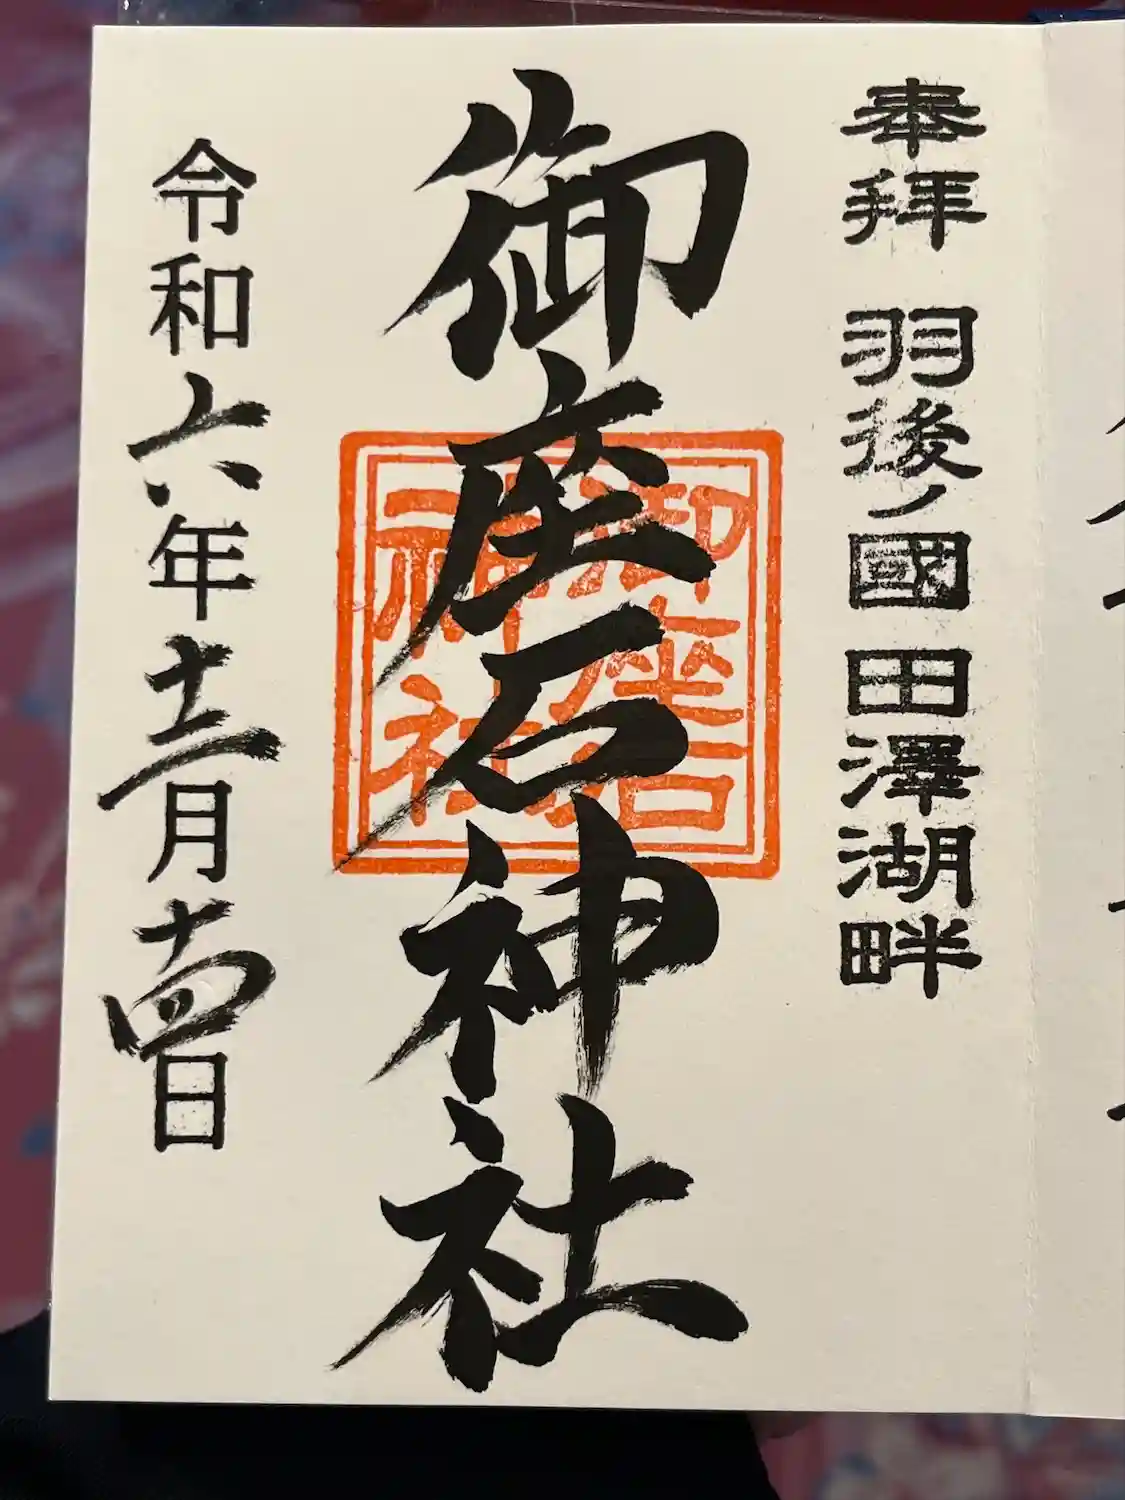 奉拝 羽後ノ國 田澤湖畔
御座石神社
御座石
神社
令和六年十二月十四日